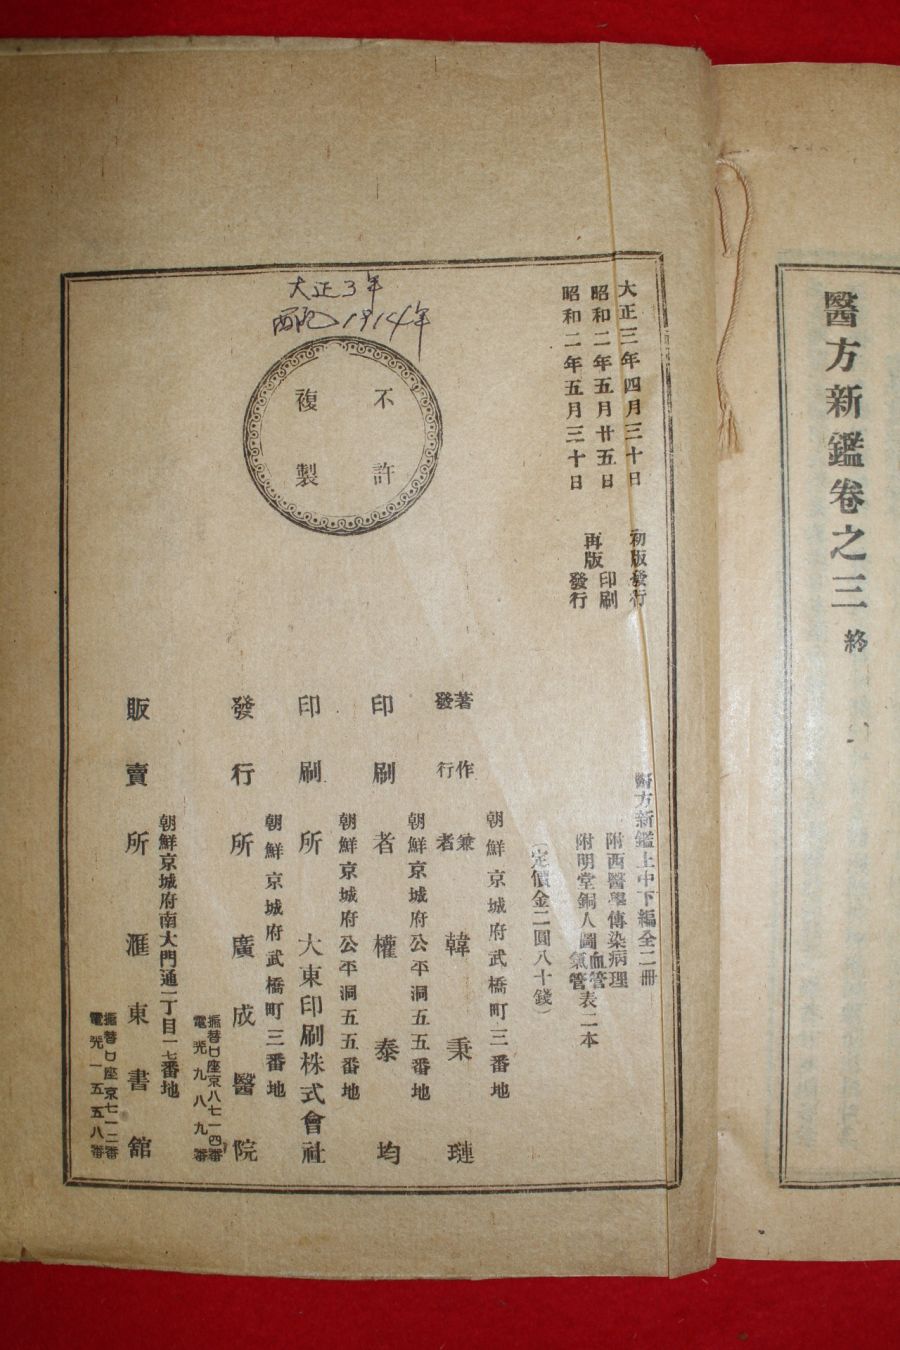 醫方新鑑卷之三 終
大正三年四月三十日 初版發行
昭和二年五月廿五日 再版印刷
昭和二年五月三十日 發行
醫方新鑑上中下編全二冊
附西醫學傳染病理
附明堂銅人圖血管氣管表二本
(定價金二圓八十錢)
大正3年
西紀 1914年
不許
複製
朝鮮京城府武橋町三番地
著作兼發行者 韓秉璉
朝鮮京城府公平洞五五番地
印刷者 權泰均
朝鮮京城府公平洞五五番地
印刷所 大東印刷株式會社
朝鮮京城府武橋町三番地
發行所 廣成醫院
振替口座京八七一四番
電光九八九番
朝鮮京城府南大門通一丁目一七番地
販賣所 滙東書舘
振替口座京七一二番
電光一五五八番